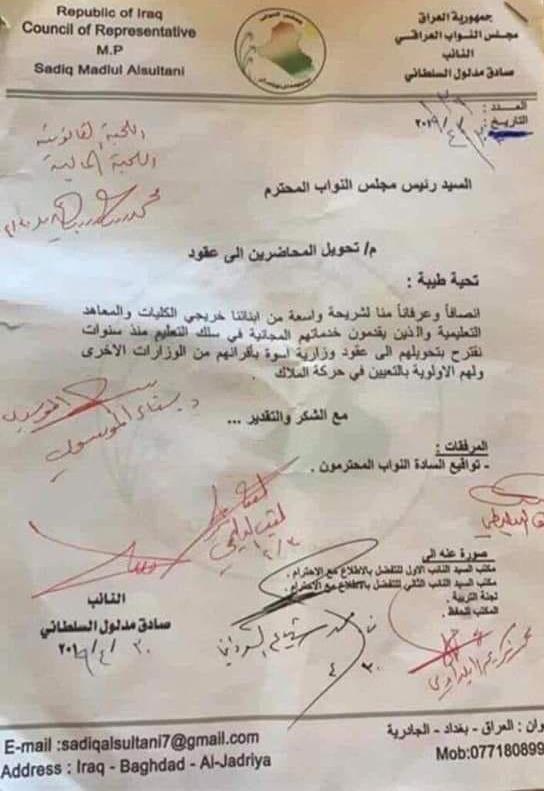 Republic of Iraq
Council of Representative
M.P
Sadiq Madlul Alsultani
جمهورية العراق
مجلس النواب العراقي
النائب
صادق مدلول السلطاني
العدد :
التاريخ :
اللجنة القانونية
اللجنة المالية
السيد رئيس مجلس النواب المحترم
م/ تحويل المحاضرين الى عقود
تحية طيبة :
انصافاً وعرفاناً منا لشريحة واسعة من ابنائنا خريجي الكليات والمعاهد
التعليمية والذين يقدمون خدماتهم المجانية في سلك التعليم منذ سنوات
نقترح بتحويلهم الى عقود وزارية اسوة بأقرانهم من الوزارات الاخرى
ولهم الاولوية بالتعيين في حركة الملاك
مع الشكر والتقدير ...
د. سناء الموسوي
المرفقات :
- تواقيع السادة النواب المحترمون .
صورة عنه الى
مكتب السيد النائب الاول للتفضل بالاطلاع مع الاحترام .
مكتب السيد النائب الثاني للتفضل بالاطلاع مع الاحترام .
لجنة التربية .
المكتب للحفظ .
النائب
صادق مدلول السلطاني
٢٠١٩/٤/٣٠
E-mail :sadiqalsultani7@gmail.com
Address : Iraq - Baghdad - Al-Jadriya
وان : العراق - بغداد - الجادرية
Mob:077180899